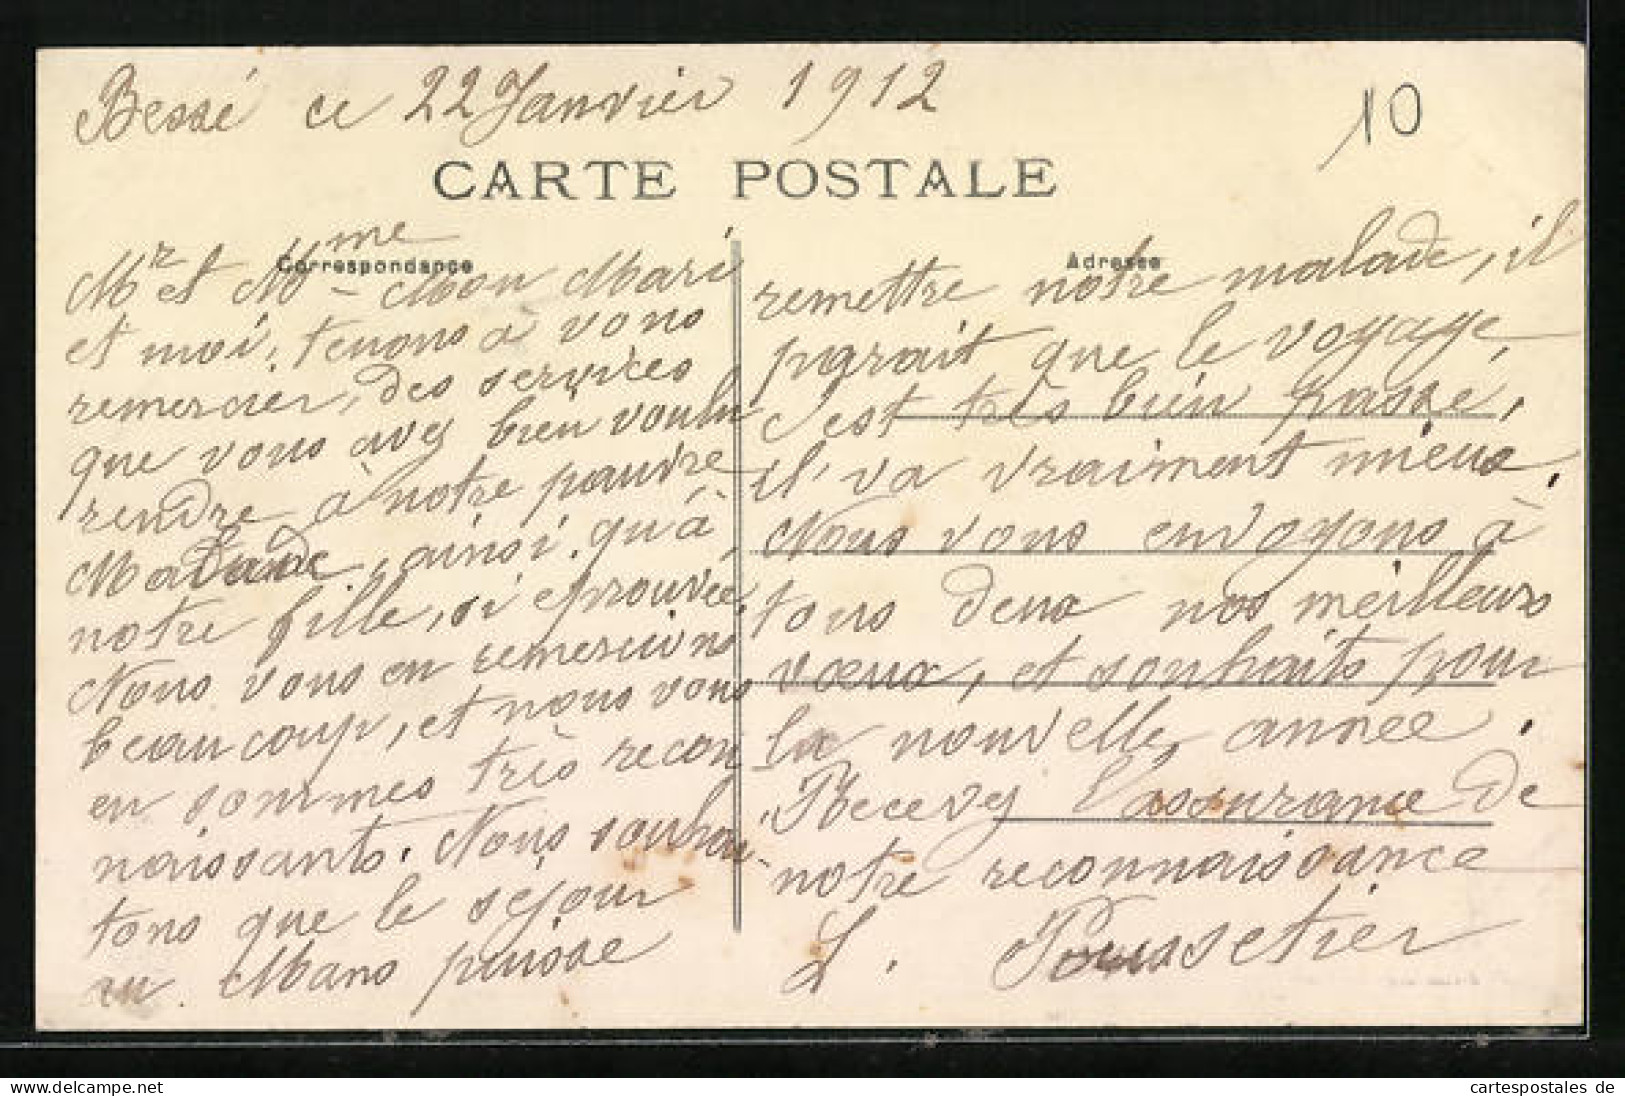 Bessé ce 22 Janvier 1912
10
CARTE POSTALE
Correspondance
Adresse
Mr et Mme - Mon Mari
et moi, tenons à vous
remercier, des services
que vous avez bien voulu
rendre à notre pauvre
Malade, ainsi qu'à
notre fille, si éprouvée,
Nous vous en remercions
beaucoup, et nous vous
en sommes très recon
naissants. Nous souhai-
tons que le séjour
au Mans puisse
remettre notre malade, il
parait que le voyage,
c'est très bien passé,
il va vraiment mieux.
Nous vous envoyons à
tous deux nos meilleurs
vœux, et souhaits pour
la nouvelle année.
Recevez l'assurance de
notre reconnaissance
L. Poussetier
cartespostales de